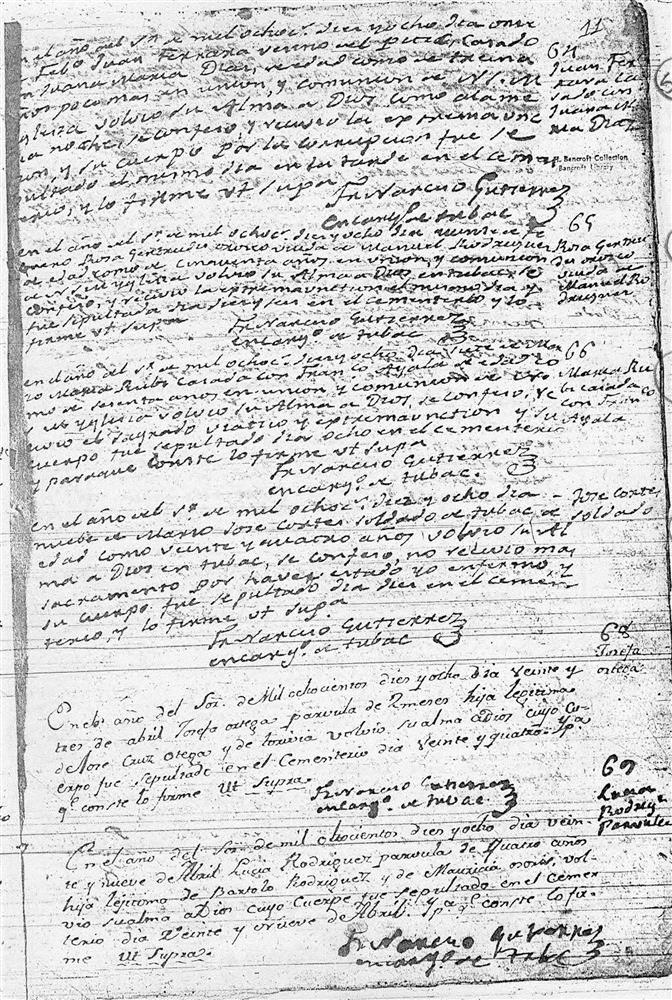 11
en el año del Sr. de mil ochoc.s diez y ocho dia once
de Feb.o Juan Ferrara vecino del Pitic, Casado
con Juana Maria Diaz, de edad como de treinta
años poco mas en union, y comunion de N. S. M.
Yglesia volvio su Alma a Dios como a la me
dia noche, se confeso, y recivio la extrema unc
ion, y su cuerpo por la corrupcion fue se
pultado el mismo dia en la tarde en el cemen
terio, y lo firme vt supa
Fr. Narciso Gutierrez
encarg.o de tubac
64
Juan Fer
rara ca
sado con
Juana Ma
ria Diaz
Bancroft Collection
Bancroft Library
en el año del Sr. de mil ochoc.s diez y ocho dia quinze de
Rosa Gertrudis orosco viuda de Manuel Rodriguez
de edad como de cinquenta años en union, y comunion
de N. S. M. Yglesia volvio su Alma a Dios, en tubac, se
confeso, y recivio la extremaunction el mismo dia y
fue sepultada dia diez y seis en el cementerio y lo
firme vt supa
Fr. Narciso Gutierrez
encarg.o de tubac
65
Rosa Gertru
dis orosco
viuda de
Manuel Ro
driguez
en el año del Sr. de mil ochoc.s diez y ocho dia siete de Mar
zo Maria Rubi Casada con Fran.co Ayala de edad co
mo de sesenta años en union y comunion de N.
S. M. Yglesia volvio su Alma a Dios, se confeso, re
civio el sagrado viatico y extremaunction y su
cuerpo fue sepultado dia ocho en el cementerio
y paraque conste lo firme vt supa
Fr. Narciso Gutierrez
encarg.o de tubac.
66
Maria Ru
bi casada
con Fran.co
Ayala
en el año del Sr. de mil ochoc.s diez y ocho dia
nuebe de Marzo Jose Cortes soldado de tubac de
edad como veinte y quatro años, volvio su Al
ma a Dios en tubac, se confeso, no recivio mas
sacramento por haver estado yo enfermo, y
su cuerpo fue sepultado dia diez en el cemen
terio, y lo firme vt supa
Fr. Narciso Gutierrez
encarg.o de tubac
Jose Cortes
soldado
En el año del Sor. de Mil ochocientos dies y ocho dia veinte y
tres de abril Josefa ortega parvula de 2 meses hija legitima
de Jose Cruz Otega y de volvio su alma a Dios cuyo Cu
erpo fue sepultado en el Cementerio dia veinte y quatro. Y pa
q.e conste lo firme Ut Supra.
Fr. Narciso Gutierrez
encarg.o de tubac
68
Josefa
ortega
En el año del Sor. de mil ochocientos dies y ocho dia vein-
te y nueve de Abril Lucia Rodriquez parvula de Quatro años
hija lejitima de Bartolo Rodriquez y de Mauricia osorio, vol-
vio su alma a Dios cuyo Cuerpo fue sepultado en el Cemen
terio dia Veinte y nueve de Abril. Y p.a q.e conste lo fir-
me Ut Supra.
Fr. Narciso Gutierrez
encarg.o de tubac
69
Lucia
Rodrigz
Parvula